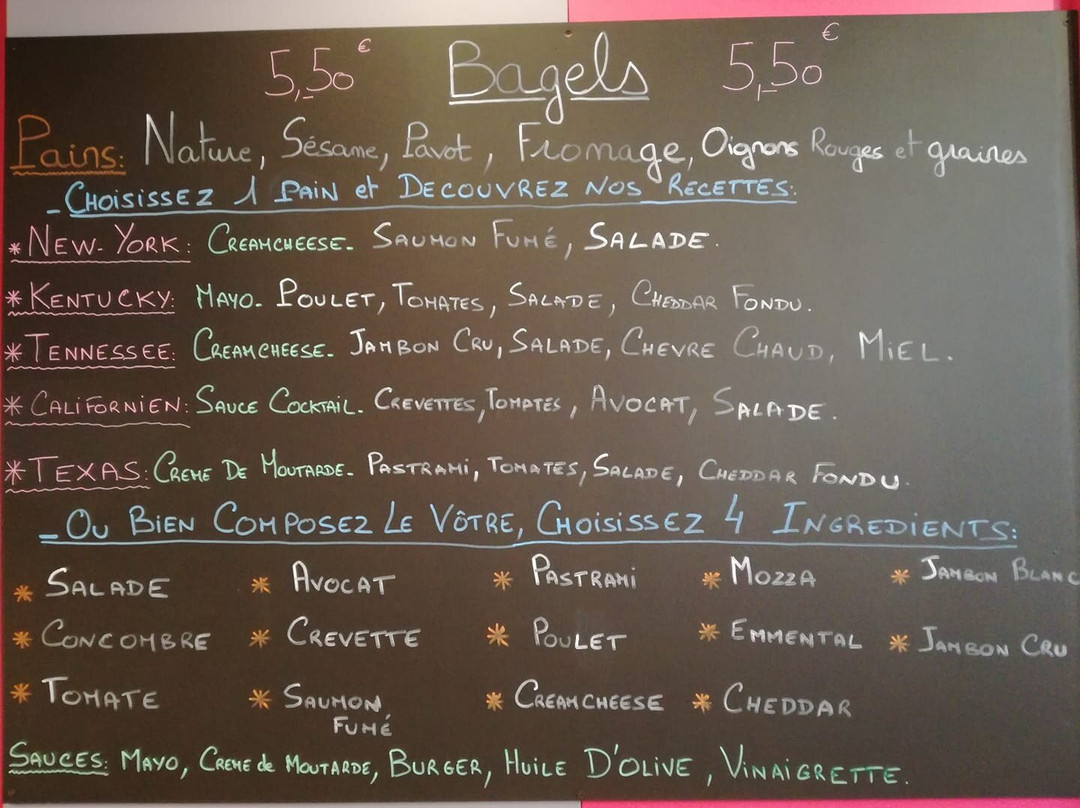 5,50€ Bagels 5,50€
Pains: Nature, Sésame, Pavot, Fromage, Oignons Rouges et graines
- CHOISISSEZ 1 PAIN et DECOUVREZ NOS RECETTES:
* NEW-YORK: CREAMCHEESE- SAUMON FUMÉ, SALADE.
* KENTUCKY: MAYO- POULET, TOMATES, SALADE, CHEDDAR FONDU.
* TENNESSEE: CREAMCHEESE- JAMBON CRU, SALADE, CHEVRE CHAUD, MIEL.
* CALIFORNIEN: SAUCE COCKTAIL- CREVETTES, TOMATES, AVOCAT, SALADE.
* TEXAS: CREME DE MOUTARDE- PASTRAMI, TOMATES, SALADE, CHEDDAR FONDU.
- OU BIEN COMPOSEZ LE VÔTRE, CHOISISSEZ 4 INGREDIENTS:
* SALADE * AVOCAT * PASTRAMI * MOZZA * JAMBON BLANC
* CONCOMBRE * CREVETTE * POULET * EMMENTAL * JAMBON CRU
* TOMATE * SAUMON FUMÉ * CREAMCHEESE * CHEDDAR
SAUCES: MAYO, CREME de MOUTARDE, BURGER, HUILE D'OLIVE, VINAIGRETTE.